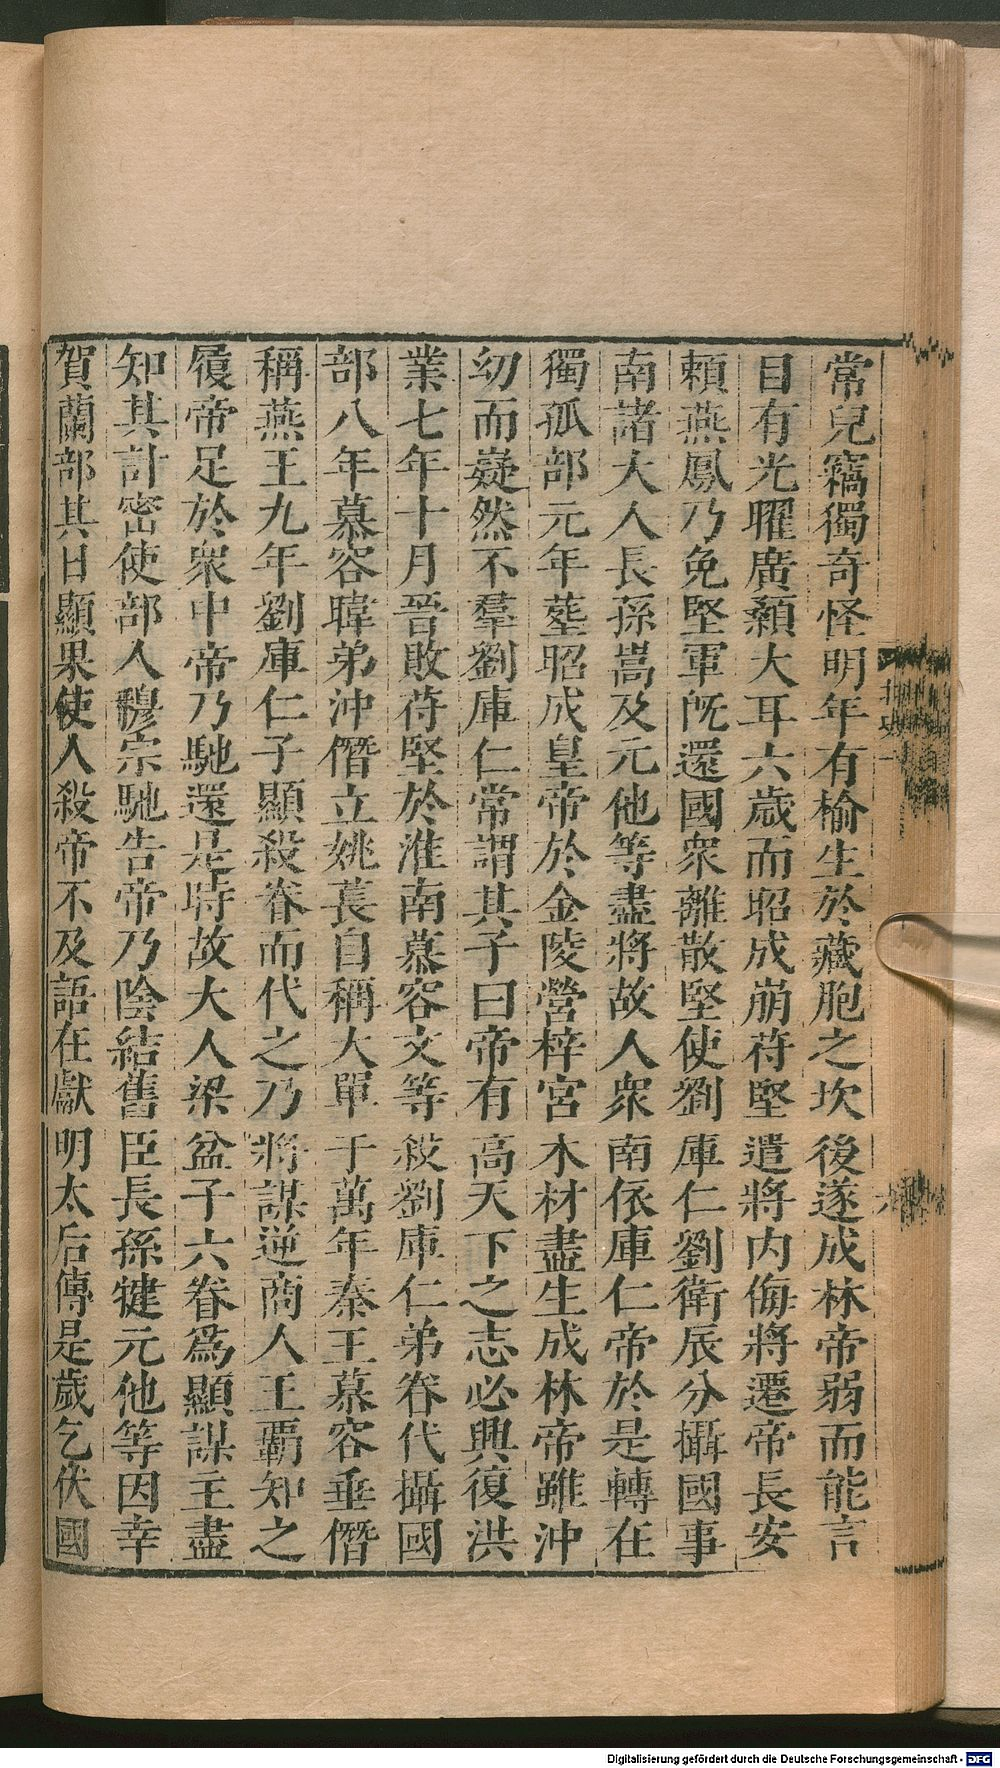 常兒竊獨奇怪明年有榆生於藏胞之坎後遂成林帝弱而能言
目有光曜廣顙大耳六歲而昭成崩苻堅遣將內侮將遷帝長安
賴燕鳳乃免堅軍旣還國衆離散堅使劉庫仁劉衛辰分攝國事
南諸大人長孫嵩及元他等盡將故人衆南依庫仁帝於是轉在
獨孤部元年葬昭成皇帝於金陵營梓宮木材盡生成林帝雖沖
幼而嶷然不羣劉庫仁常謂其子曰帝有高天下之志必興復洪
業七年十月晉敗苻堅於淮南慕容文等殺劉庫仁弟眷代攝國
部八年慕容暐弟沖僭立姚萇自稱大單于萬年秦王慕容垂僭
稱燕王九年劉庫仁子顯殺眷而代之乃將謀逆商人王霸知之
履帝足於衆中帝乃馳還是時故大人梁盆子六眷爲顯謀主盡
知其計密使部人穆宗馳告帝乃陰結舊臣長孫犍元他等因幸
賀蘭部其日顯果使人殺帝不及語在獻明太后傳是歲乞伏國
北史一
六
Digitalisierung gefördert durch die Deutsche Forschungsgemeinschaft - DFG